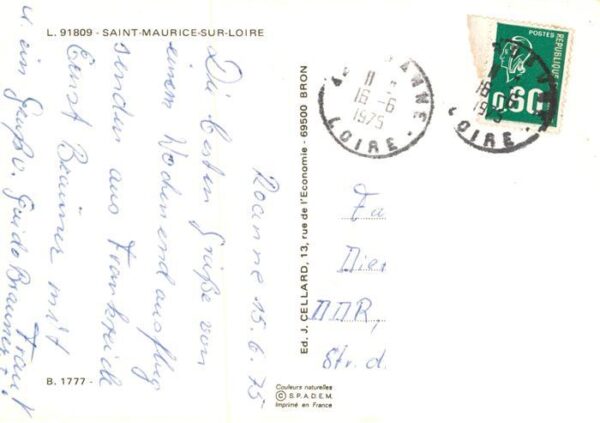 L. 91809 - SAINT-MAURICE-SUR-LOIRE
Roanne 15.6.75
Die besten Grüße von
einem Wochenendausflug
senden aus Frankreich
Ernst Brauner mit
Frau
u ein Gruß v. Guido Brauner
B. 1777 -
Ed. J. CELLARD, 13, rue de l'Economie - 69500 BRON
Couleurs naturelles
© S.P.A.D.E.M.
Imprimé en France
ROANNE
11
16-6
1975
LOIRE
16-6
1975
LOIRE
POSTES
REPUBLIQUE
0,60
Fa
Die
DDR,
Str. d.